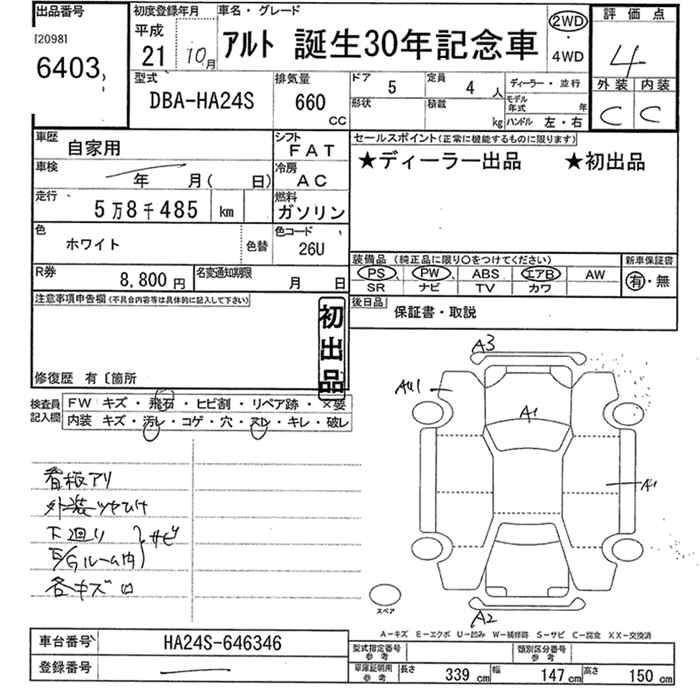 出品番号
[2098]
6403
初度登録年月
平成
21 10月
車名・グレード
ｱﾙﾄ 誕生30年記念車
2WD
・
4WD
評価点
4
外装 内装
C C
型式
DBA-HA24S
排気量
660
CC
ドア
5
定員
4 人
ディーラー・並行
形状
積載
kg
モデル年式 年
ハンドル 左・右
車歴
自家用
シフト
FAT
車検
年 月( 日)
冷房
AC
走行
5万8千485 km
燃料
ガソリン
色
ホワイト
色替
色コード
26U
R券
8,800円
名変通知期限
月 日
セールスポイント(正常に機能するものに限ります)
★ディーラー出品 ★初出品
装備品 (純正品に限り○をつけてください)
PS PW ABS エアB AW
SR ナビ TV カワ
新車保証書
有・無
後日品
保証書・取説
注意事項申告欄(不具合内容等は具体的に記入して下さい)
初出品
修復歴 有〔箇所
検査員記入欄
FW キズ・飛石・ヒビ割・リペア跡・×要
内装 キズ・汚レ・コゲ・穴・スレ・キレ・破レ
看板アリ
外装ツヤひけ
下廻り
E/Gルーム内
サビ
各キズ凹
A3
A1
A1
A2
スペア
A－キズ E－エクボ U－凹み W－補修跡 S－サビ C－腐食 XX－交換済
車台番号
HA24S-646346
登録番号
型式指定番号
参考
類別区分番号
参考
車庫証明用
参考
長さ 339 cm 幅 147 cm 高さ 150 cm